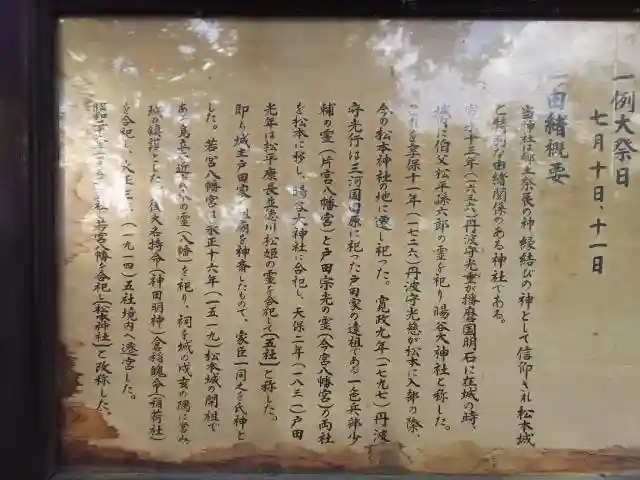 一例大祭日
七月十日、十一日
由緒概要
当神社は郷土発展の神縁結びの神として信仰され松本城
と特別な由緒関係のある神社である。
十三年(一六三六)丹波守光重が播磨国明石に在城の時、
に伯父松平孫六郎の霊を祀り暘谷大神社と称した。
これを享保十一年(一七二六)丹波守光慈が松本に入部の際、
今の松本神社の地に遷し祀った。寛政九年(一七九七)丹波
守光行は三河国田原に祀った戸田家の遠祖である一色兵部少
輔の霊(片宮八幡宮)と戸田宗光の霊(今宮八幡宮)の両社
を松本に移し、暘谷大神社に合祀し、天保二年(一八三一)戸田
光年は松平康長並憲川松姫の霊を合祀して(五社)と称した。
即ち城主戸田家の祖廟を神斎したもので、家臣一同之を氏神と
した。若宮八幡宮は永正十六年(一五一九)松本城の開祖で
ある島立
の霊(八幡)を祀り、祠を城の戌亥の隅に営み
城の鎮護とした。後大名持命(神田明神)倉稲魄命(稲荷社)
を合祀し、大正三
(一九一四)五社境内へ遷宮した。
昭和
若宮八幡を合祀し(松本神社)と改称した。